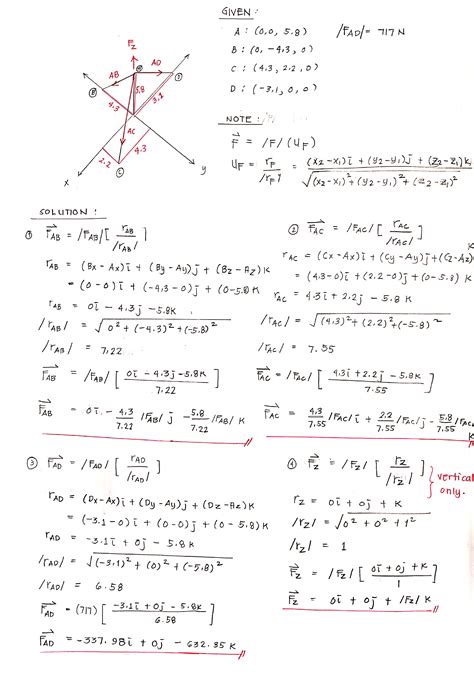 GIVEN :
A : (0,0, 5.8) /FAD/= 717 N
B : (0, -4.3, 0)
C : (4.3, 2.2, 0)
D : (-3.1, 0, 0)
NOTE :
F = /F/ (UF)
UF = rF / /rF/ = (x2-x1)i + (y2-y1)j + (z2-z1)k / √(x2-x1)² + (y2-y1)² + (z2-z1)²
Fz
AB
AD
B
D
5.8
4.3
3.1
AC
4.3
2.2
C
x
y
SOLUTION :
① FAB = /FAB/ [ rAB / /rAB/ ]
rAB = (Bx - Ax)i + (By - Ay)j + (Bz - Az)k
= (0-0)i + (-4.3-0)j + (0-5.8)k
rAB = 0i - 4.3j - 5.8k
/rAB/ = √ 0² + (-4.3)² + (-5.8)²
/rAB/ = 7.22
FAB = /FAB/ [ 0i - 4.3j - 5.8k / 7.22 ]
FAB = 0i - 4.3/7.22 /FAB/ j - 5.8/7.22 /FAB/ k
② FAC = /FAC/ [ rAC / /rAC/ ]
rAC = (Cx - Ax)i + (Cy - Ay)j + (Cz - Az)k
= (4.3-0)i + (2.2-0)j + (0-5.8)k
rAC = 4.3i + 2.2j - 5.8k
/rAC/ = √ (4.3)² + (2.2)² + (-5.8)²
/rAC/ = 7.55
FAC = /FAC/ [ 4.3i + 2.2j - 5.8k / 7.55 ]
FAC = 4.3/7.55 /FAC/ i + 2.2/7.55 /FAC/ j - 5.8/7.55 /FAC/ k
③ FAD = /FAD/ [ rAD / /rAD/ ]
rAD = (Dx - Ax)i + (Dy - Ay)j + (Dz - Az)k
= (-3.1-0)i + (0-0)j + (0-5.8)k
rAD = -3.1i + 0j - 5.8k
/rAD/ = √ (-3.1)² + (0)² + (-5.8)²
/rAD/ = 6.58
FAD = (717) [ -3.1i + 0j - 5.8k / 6.58 ]
FAD = -337.98i + 0j - 632.35k
④ Fz = /Fz/ [ rz / /rz/ ]
vertical
only.
rz = 0i + 0j + k
/rz/ = √ 0² + 0² + 1²
/rz/ = 1
Fz = /Fz/ [ 0i + 0j + k / 1 ]
Fz = 0i + 0j + /Fz/ k